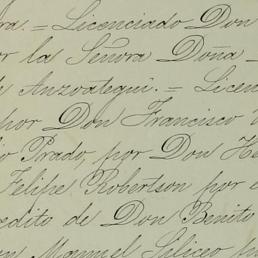 ra. = Licenciado Don
or la Señora Doña
e Anzoategui. = Licen
por Don Francisco
io Prado, por Don He
Felipe Robertson por e
edito de Don Benito
on Manuel Siliceo